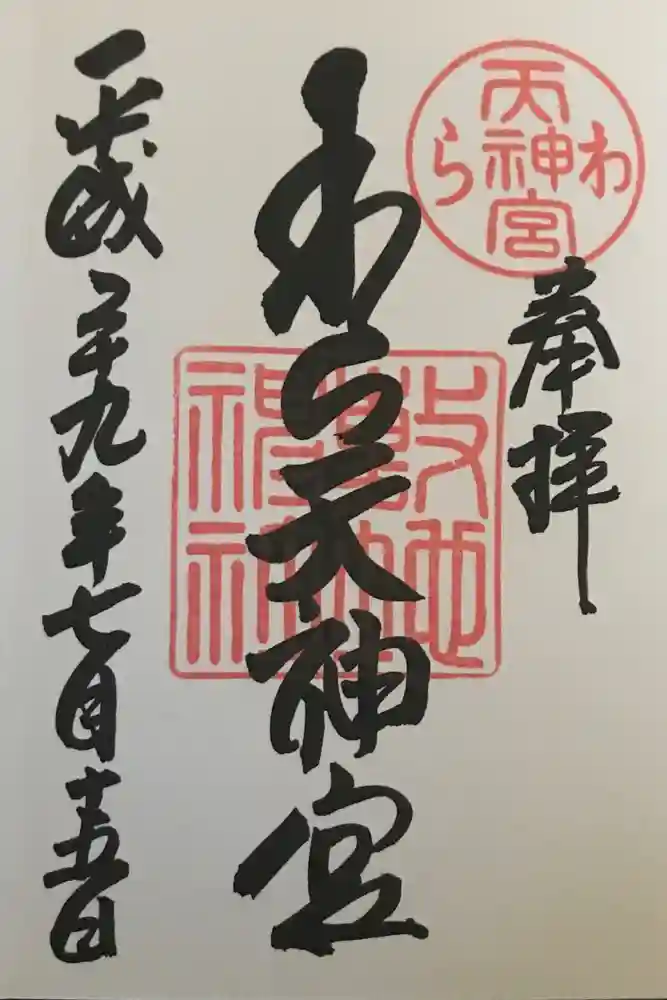 わら
天神宮
奉拝
わら天神宮
敷地
神社
平成二十九年七月十五日